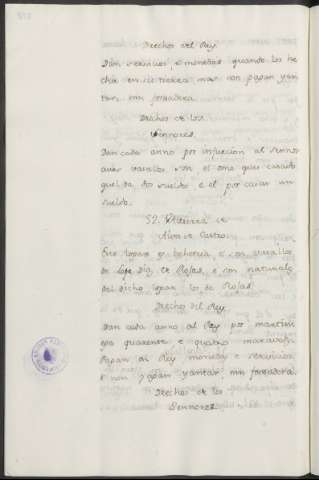 Derechos del Rey.
Dan servicios, e monedas quando los he
cha en su tierra, mas non pagan yan
tar, nin fonsadera.
Derechos de los
Sennores.
Dan cada anno por infurcion al sennor
cuios vasallos son el ome que es casado
quel da dos sueldos e el por casar un
sueldo.
52.
de Castro.
Este logar es behetria, e son vasallos
de Lope Diaz de Rojas, e son naturales
del dicho logar los de Rojas.
Derechos del Rey.
Dan cada anno al Rey por martini
ega quarenta e quatro maravedis.
Pagan al Rey monedas e servicios,
e non pagan yantar nin fonsadera.
Derechos de los
Sennores.